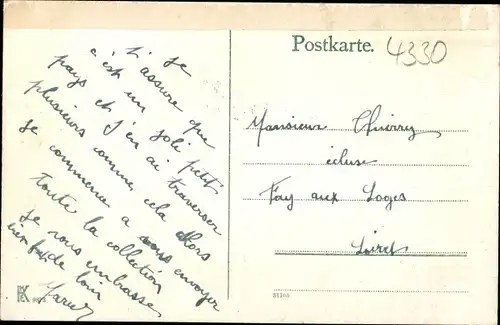 Postkarte.
4330
je
t'assure que
c'est un joli petit
pays et j'en ai traverser
plusieurs comme cela Alors
je commence a vous envoyer
toute la collection
je vous embrasse
bien fort de loin
Monsieur Thierry
écluse
Fay aux Loges
Loiret